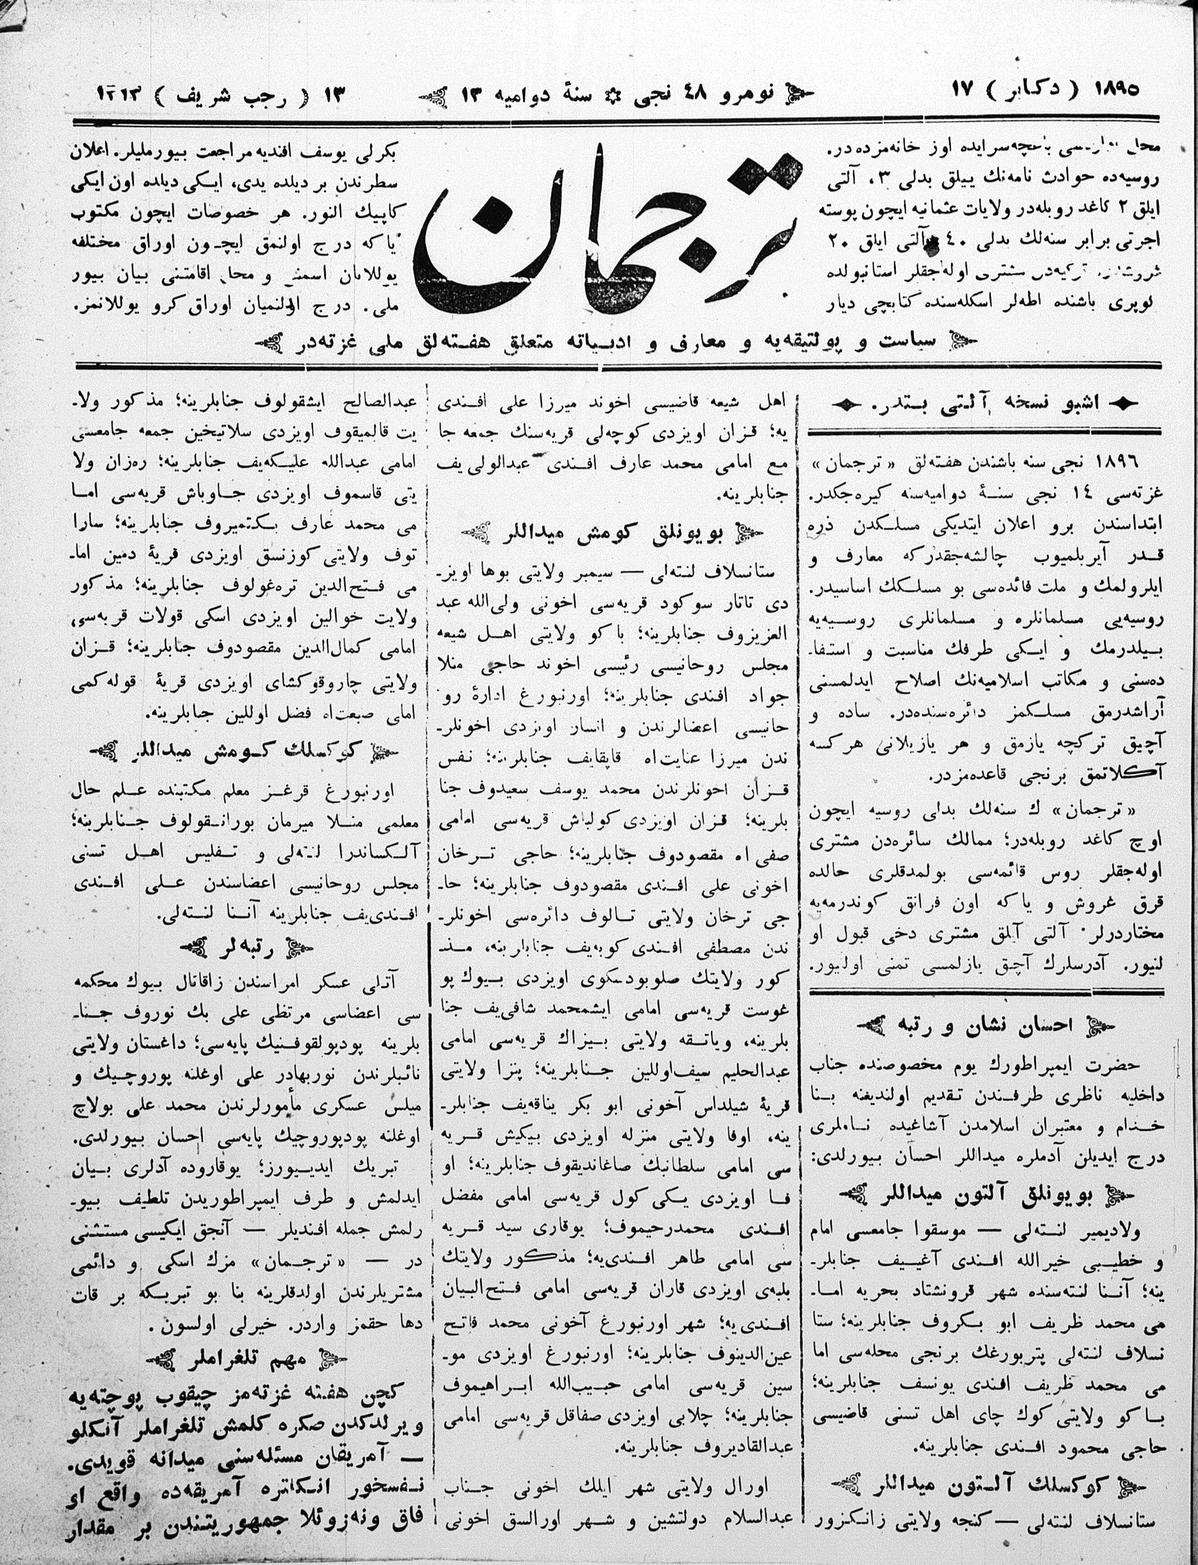 ١٨٩٥ ( دكابر ) ١٧
نومرو ٤٨ نجى ✡ سنهٔ دواميه ١٣
١٣ ( رجب شريف ) ١٣١٣
باغچه‌سرايده اوز خانه‌مزده‌در.
روسيه‌ده حوادث نامه‌نك ييللق بدلى ٣، آلتى
ايلق ٢ كاغد روبله‌در ولايات عثمانيه ايچون پوسته
اجرتى برابر سنه‌لك بدلى ٤٠ آلتى ايلق ٢٠
غروشدر. تركيه‌دن مشترى اوله‌جقلر استانبولده
كوپرى باشنده اطه‌لر اسكله‌سنده كتابچى ديار
ترجمان
بكرلى يوسف افنديه مراجعت بيورمليلر. اعلان
سطرندن بر ديلده يدى، ايكى ديلده اون ايكى
كاپيك النور. هر خصوصات ايچون مكتوب
ياكه درج اولنمق ايچون اوراق مختلفه
يوللايان اسمنى و محل اقامتنى بيان بيور
ملى. درج اولنميان اوراق كرو يوللانمز.
سياست و پولتيقه‌يه و معارف و ادبياته متعلق هفته‌لق ملى غزته‌در
اشبو نسخه آلتى بتدر.
١٨٩٦ نجى سنه باشندن هفته‌لق «ترجمان»
غزته‌سى ١٤ نجى سنهٔ دواميه‌سنه كيره‌جكدر.
ابتداسندن برو اعلان ايتديكى مسلكدن ذره
قدر آيريلميوب چالشه‌جقدركه معارف و
ايلرولمك و ملت فائده‌سى بو مسلكك اساسيدر.
روسيه‌يى مسلمانلره و مسلمانلرى روسيه‌يه
بيلدرمك و ايكى طرفك مناسبت و استفا‌ـ
ده‌سنى و مكاتب اسلاميه‌نك اصلاح ايدلمسنى
آراشدرمق مسلكمز دائره‌سنده‌در. ساده و
آچيق تركچه يازمق و هر يازيلانى هركسه
آكلاتمق برنجى قاعده‌مزدر.
«ترجمان» ك سنه‌لك بدلى روسيه ايچون
اوچ كاغد روبله‌در؛ ممالك سائره‌دن مشترى
اوله‌جقلر روس قائمه‌سى بولمدقلرى حالده
قرق غروش و ياكه اون فرانق كوندرمه‌يه
مختاردرلر. آلتى آيلق مشترى دخى قبول او
لنيور. آدرسلرك آچيق يازلمسى تمنى اوليور.
احسان نشان و رتبه
حضرت ايمپراطورك يوم مخصوصنده جناب
داخليه ناظرى طرفندن تقديم اولنديغنه بنا
خدام و معتبران اسلامدن آشاغيده ناملرى
درج ايديلن آدملره ميداللر احسان بيورلدى:
بويونلق آلتون ميداللر
ولاديمير لنته‌لى — موسقوا جامعسى امام
و خطيبى خيرالله افندى آغييف جنابلرـ
ينه؛ آننا لنته‌سنده شهر قرونشتاد بحريه اماـ
مى محمد ظريف ابو بكروف جنابلرينه؛ ستا
نسلاف لنته‌لى پتربورغك برنجى محله‌سى اما
مى محمد ظريف افندى يونسف جنابلرينه؛
باكو ولايتى كوك چاى اهل تسنى قاضيسى
حاجى محمود افندى جنابلرينه.
كوكسلك آلتون ميداللر
ستانسلاف لنته‌لى — كنجه ولايتى زانكزور
اهل شيعه قاضيسى اخوند ميرزا على افندى
يه؛ قزان اويزدى كوچه‌لى قريه‌سنك جمعه جا
مع امامى محمد عارف افندى عبدالولى‌يف
جنابلرينه.
بويونلق كومش ميداللر
ستانسلاف لنته‌لى — سيمبر ولايتى بوها اويزـ
دى تاتار سوكود قريه‌سى اخونى ولى‌الله عبد
العزيزوف جنابلرينه؛ باكو ولايتى اهل شيعه
مجلس روحانيسى رئيسى اخوند حاجى منلا
جواد افندى جنابلرينه؛ اورنبورغ ادارهٔ روـ
حانيسى اعضالرندن و انسار اويزدى اخونلرـ
ندن ميرزا عنايت‌اه قاپقايف جنابلرينه؛ نفس
قزأن اخونلرندن محمد يوسف سعيدوف جنا
بلرينه؛ قزان اويزدى كولباش قريه‌سى امامى
صفى‌اه مقصودوف جنابلرينه؛ حاجى ترخان
اخونى على افندى مقصودوف جنابلرينه؛ حاـ
جى ترخان ولايتى تالوف دائره‌سى اخونلرـ
ندن مصطفى افندى كوبه‌يف جنابلرينه، مذـ
كور ولايتك اويزدى بيوك پو
غوست قريه‌سى امامى ايشمحمد شافى‌يف جنا
بلرينه، وياتقه ولايتى بيزاك قريه‌سى امامى
عبدالحليم سيف‌اوللين جنابلرينه؛ پنزا ولايتى
قريهٔ شيلداس آخونى ابو بكر يناقه‌يف جنابلرـ
ينه، اوفا ولايتى منزله اويزدى بيكيش قريه
سى امامى سلطانبك صاغانديقوف جنابلرينه؛ او
فا اويزدى يكى كول قريه‌سى امامى مفضل
افندى محمدرحيموف؛ يوقارى سيد قريه
سى امامى طاهر افندى‌يه؛ مذكور ولايتك
بلبه‌ى اويزدى قاران قريه‌سى امامى فتح‌البيان
افندى‌يه؛ شهر اورنبورغ آخونى محمد فاتح
عين‌الدينوف جنابلرينه؛ اورنبورغ اويزدى موـ
سين قريه‌سى امامى حبيب‌الله ابراهيموف
جنابلرينه؛ چلابى اويزدى صفاقل قريه‌سى امامى
عبدالقاديروف جنابلرينه.
اورال ولايتى شهر ايلك اخونى جناب
عبدالسلام دولتشين و شهر اورالسق اخونى
عبدالصالح ايشقولوف جنابلرينه؛ مذكور ولاـ
يت قالميقوف اويزدى سلاتيخين جمعه جامعسى
امامى عبدالله عليكه‌يف جنابلرينه؛ ره‌زان ولا
يتى قاسموف اويزدى جاوباش قريه‌سى اما
مى محمد عارف بكتميروف جنابلرينه؛ سارا
توف ولايتى كوزنسق اويزدى قريهٔ دمين اماـ
مى فتح‌الدين تره‌غولوف جنابلرينه؛ مذكور
ولايت خوالين اويزدى اسكى قولات قريه‌سى
امامى كمال‌الدين مقصودوف جنابلرينه؛ قزان
ولايتى چاروقوكشاى اويزدى قريهٔ قوله‌كمى
امامى صبعت‌اه فضل اوللين جنابلرينه.
كوكسلك كومش ميداللر
اورنبورغ قرغز معلم مكتبنده علم حال
معلمى منلا ميرمان بورانقولوف جنابلرينه؛
آلكساندرا لنته‌لى و تفليس اهل تسنى
مجلس روحانيسى اعضاسندن على افندى
افندى‌يف جنابلرينه آننا لنته‌لى.
رتبه‌لر
آتلى عسكر امراسندن زاقاتال بيوك محكمه
سى اعضاسى مرتظى على بك نوروف جناـ
بلرينه پودپولقوفنيك پايه‌سى؛ داغستان ولايتى
نائبلرندن نوربهادر على اوغلنه پوروچيك و
ميلس عسكرى مأمورلرندن محمد على بولاچ
اوغلنه پودپوروچيك پايه‌سى احسان بيورلدى.
تبريك ايدييورز؛ يوقاروده آدلرى بيان
ايدلمش و طرف ايمپراطوريدن تلطيف بيوـ
رلمش جمله افنديلر — آنجق ايكيسى مستثنى
در — «ترجمان» مزك اسكى و دائمى
مشتريلرندن اولدقلرينه بنا بو تبريكه بر قات
دها حقمز واردر. خيرلى اولسون.
مهم تلغراملر
كچن هفته غزته‌مز چيقوب پوچته‌يه
ويرلدكدن صكره كلمش تلغراملر آنكلو
— آمريقان مسئله‌سنى ميدانه قويدى.
نفسخور انكلتره آمريقه‌ده واقع او
فاق ونه‌زوئلا جمهوريتندن بر مقدار